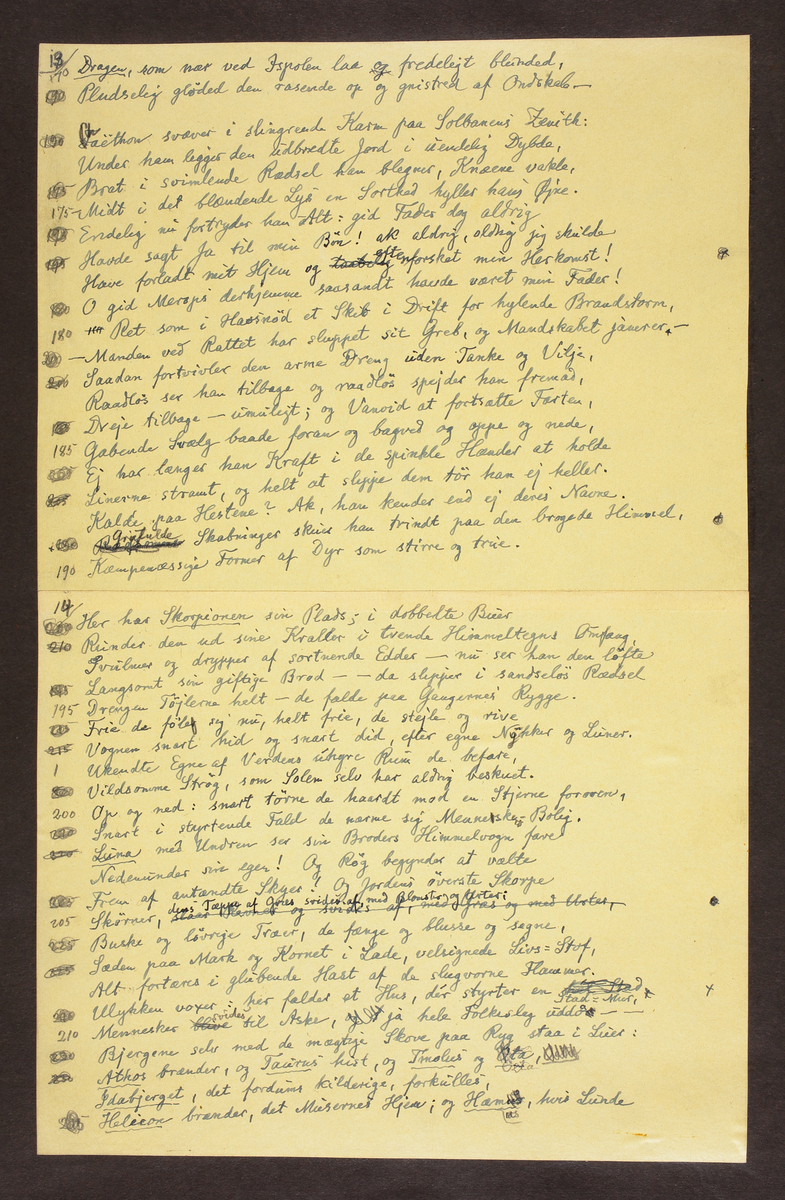 13/
170 Dragen, som nær ved Ispolen laa og fredeligt blunded,
Pludselig glöded den rasende op og gnistred af Ondskab —
Faëthon svæver i slingrende Karm paa Solbanens Zenith:
Under ham ligger den udbredte Jord i uendelig Dybde,
Brat i svimlende Rædsel han blegner, Knæene vakle,
175 Midt i det blændende Lys en Sorthed hyller hans Øjne.
Endelig nu fortryder han Alt: gid Fader dog aldrig
Havde sagt Ja til min Bön! ak aldrig, aldrig jeg skulde
Have forladt mit Hjem og efterforsket min Herkomst!
O gid Merops derhjemme saasandt havde været min Fader!
180 Ret som i Havsnöd et Skib i Drift for hylende Brandstorm,
— Manden ved Rattet har sluppet sit Greb, og Mandskabet jamrer, —
Saadan fortvivler den arme Dreng uden Tanke og Vilje,
Raadlös ser han tilbage og raadlös spejder han fremad,
Dreje tilbage — umuligt; og Vanvid at fortsætte Farten,
185 Gabende Svælg baade foran og bagved og oppe og nede,
Ej har længer han Kraft i de spinkle Hænder at holde
Linerne stramt, og helt at slippe dem tör han ej heller.
Kalde paa Hestene? Ak, han kender end ej deres Navne.
Grufulde Skabninger skuer han trindt paa den brogede Himmel,
190 Kæmpemæssige Former af Dyr som stirre og true.
14/
Her har Skorpionen sin Plads; i dobbelte Buer
Runder den ud sine Kraller i tvende Himmeltegns Omfang,
Svulmer og drypper af sortnende Edder — nu ser han den løfte
Langsomt sin giftige Brod — — da slipper i sandselös Rædsel
195 Drengen Töjlerne helt — de falde paa Gangernes Rygge.
Frie de föler sig nu, halt frie, de stejle og rive
Vognen snart hid og snart did, efter egne Nykker og Luner.
Ukendte Egne af Verdens uhyre Rum de befare,
Vildsomme Strøg, som Solen selv har aldrig beskuet.
200 Op og ned: snart törne de haardt mod en Stjerne foroven,
Snart i styrtende Fald de nærme sig Menneske-Bolig.
Luna med Undren ser sin Broders Himmelvogn fare
Nedenunder sin egen! Og Røg begynder at vælte
Frem af antændte Skyer! Og Jordens överste Skorpe
205 Skörner, dens Tæppe af Græs svides af, med Blomster og Urter;
Buske og lövrige Træer, de fænge og blusse og segne,
Sæden paa Mark og Kornet i Lade, velsignede Livs=Stof,
Alt fortæres i glubende Hast af de slugvorne Flammer.
Ulykken voxer, her falder et Hus, dér styrter en Stad=Mur,
210 Mennesker svides til Aske, ja hele Folkeslag uddö — —
Bjergene selv med de mægtige Skove paa Ryg staa i Luer:
Athos brænder, og Taurus hist, og Tmolus og Øta,
Idabjerget, det fordums kilderige, forkulles,
Helicon brænder, det Musernes Hjem; og Hæmus, hvis Lunde